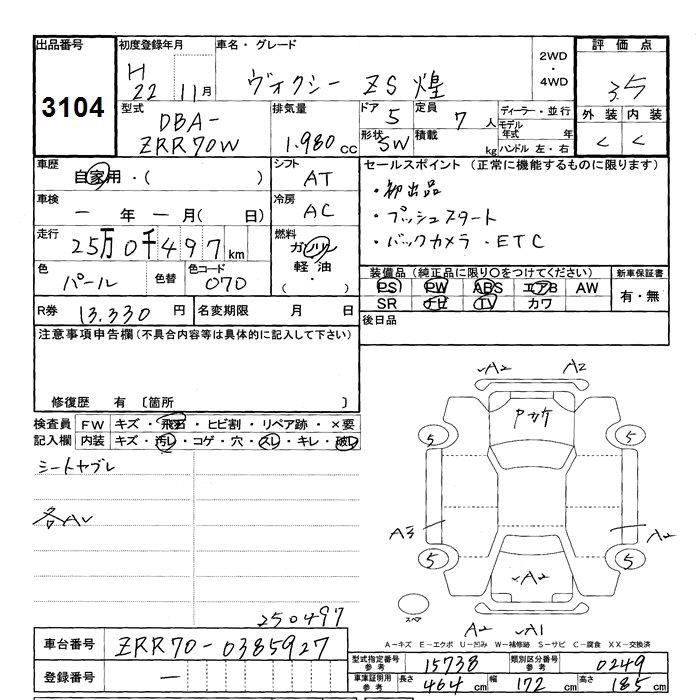 出品番号
3104
初度登録年月
H 22 11 月
車名・グレード
ヴォクシー ZS 煌
2WD
・
4WD
評価点
3.5
外装 内装
C C
型式
DBA-
ZRR70W
排気量
1.980 cc
ドア 5
定員 7 人
形状 5W
積載 kg
ディーラー・並行
モデル年式 年
ハンドル 左・右
車歴
自家用・( )
シフト
AT
車検
一 年 一 月( 日)
冷房
AC
走行
25万0千497km
燃料
ガソリン
軽油・
( )
色
パール
色替
色コード
070
セールスポイント(正常に機能するものに限ります)
・初出品
・プッシュスタート
・バックカメラ・ETC
装備品(純正品に限り○をつけてください)
PS PW ABS エアB AW
SR ナビ TV カワ
新車保証書
有・無
R券 13.330 円
名変期限 月 日
後日品
注意事項申告欄(不具合内容等は具体的に記入して下さい)
修復歴 有 〔箇所 〕
検査員 FW キズ・飛石・ヒビ割・リペア跡・×要
記入欄 内装 キズ・汚レ・コゲ・穴・スレ・キレ・破レ
シートヤブレ
各AU
250497
A2 A2
Pカケ
5 5
A3 A2
5 5
A2
スペア
A2 A1
A-キズ E-エクボ U-凹み W-補修跡 S-サビ C-腐食 XX-交換済
車台番号 ZRR70-0385927
登録番号 一
型式指定番号 参考 15738
類別区分番号 参考 0249
車庫証明用 参考 長さ 464 cm 幅 172 cm 高さ 185 cm